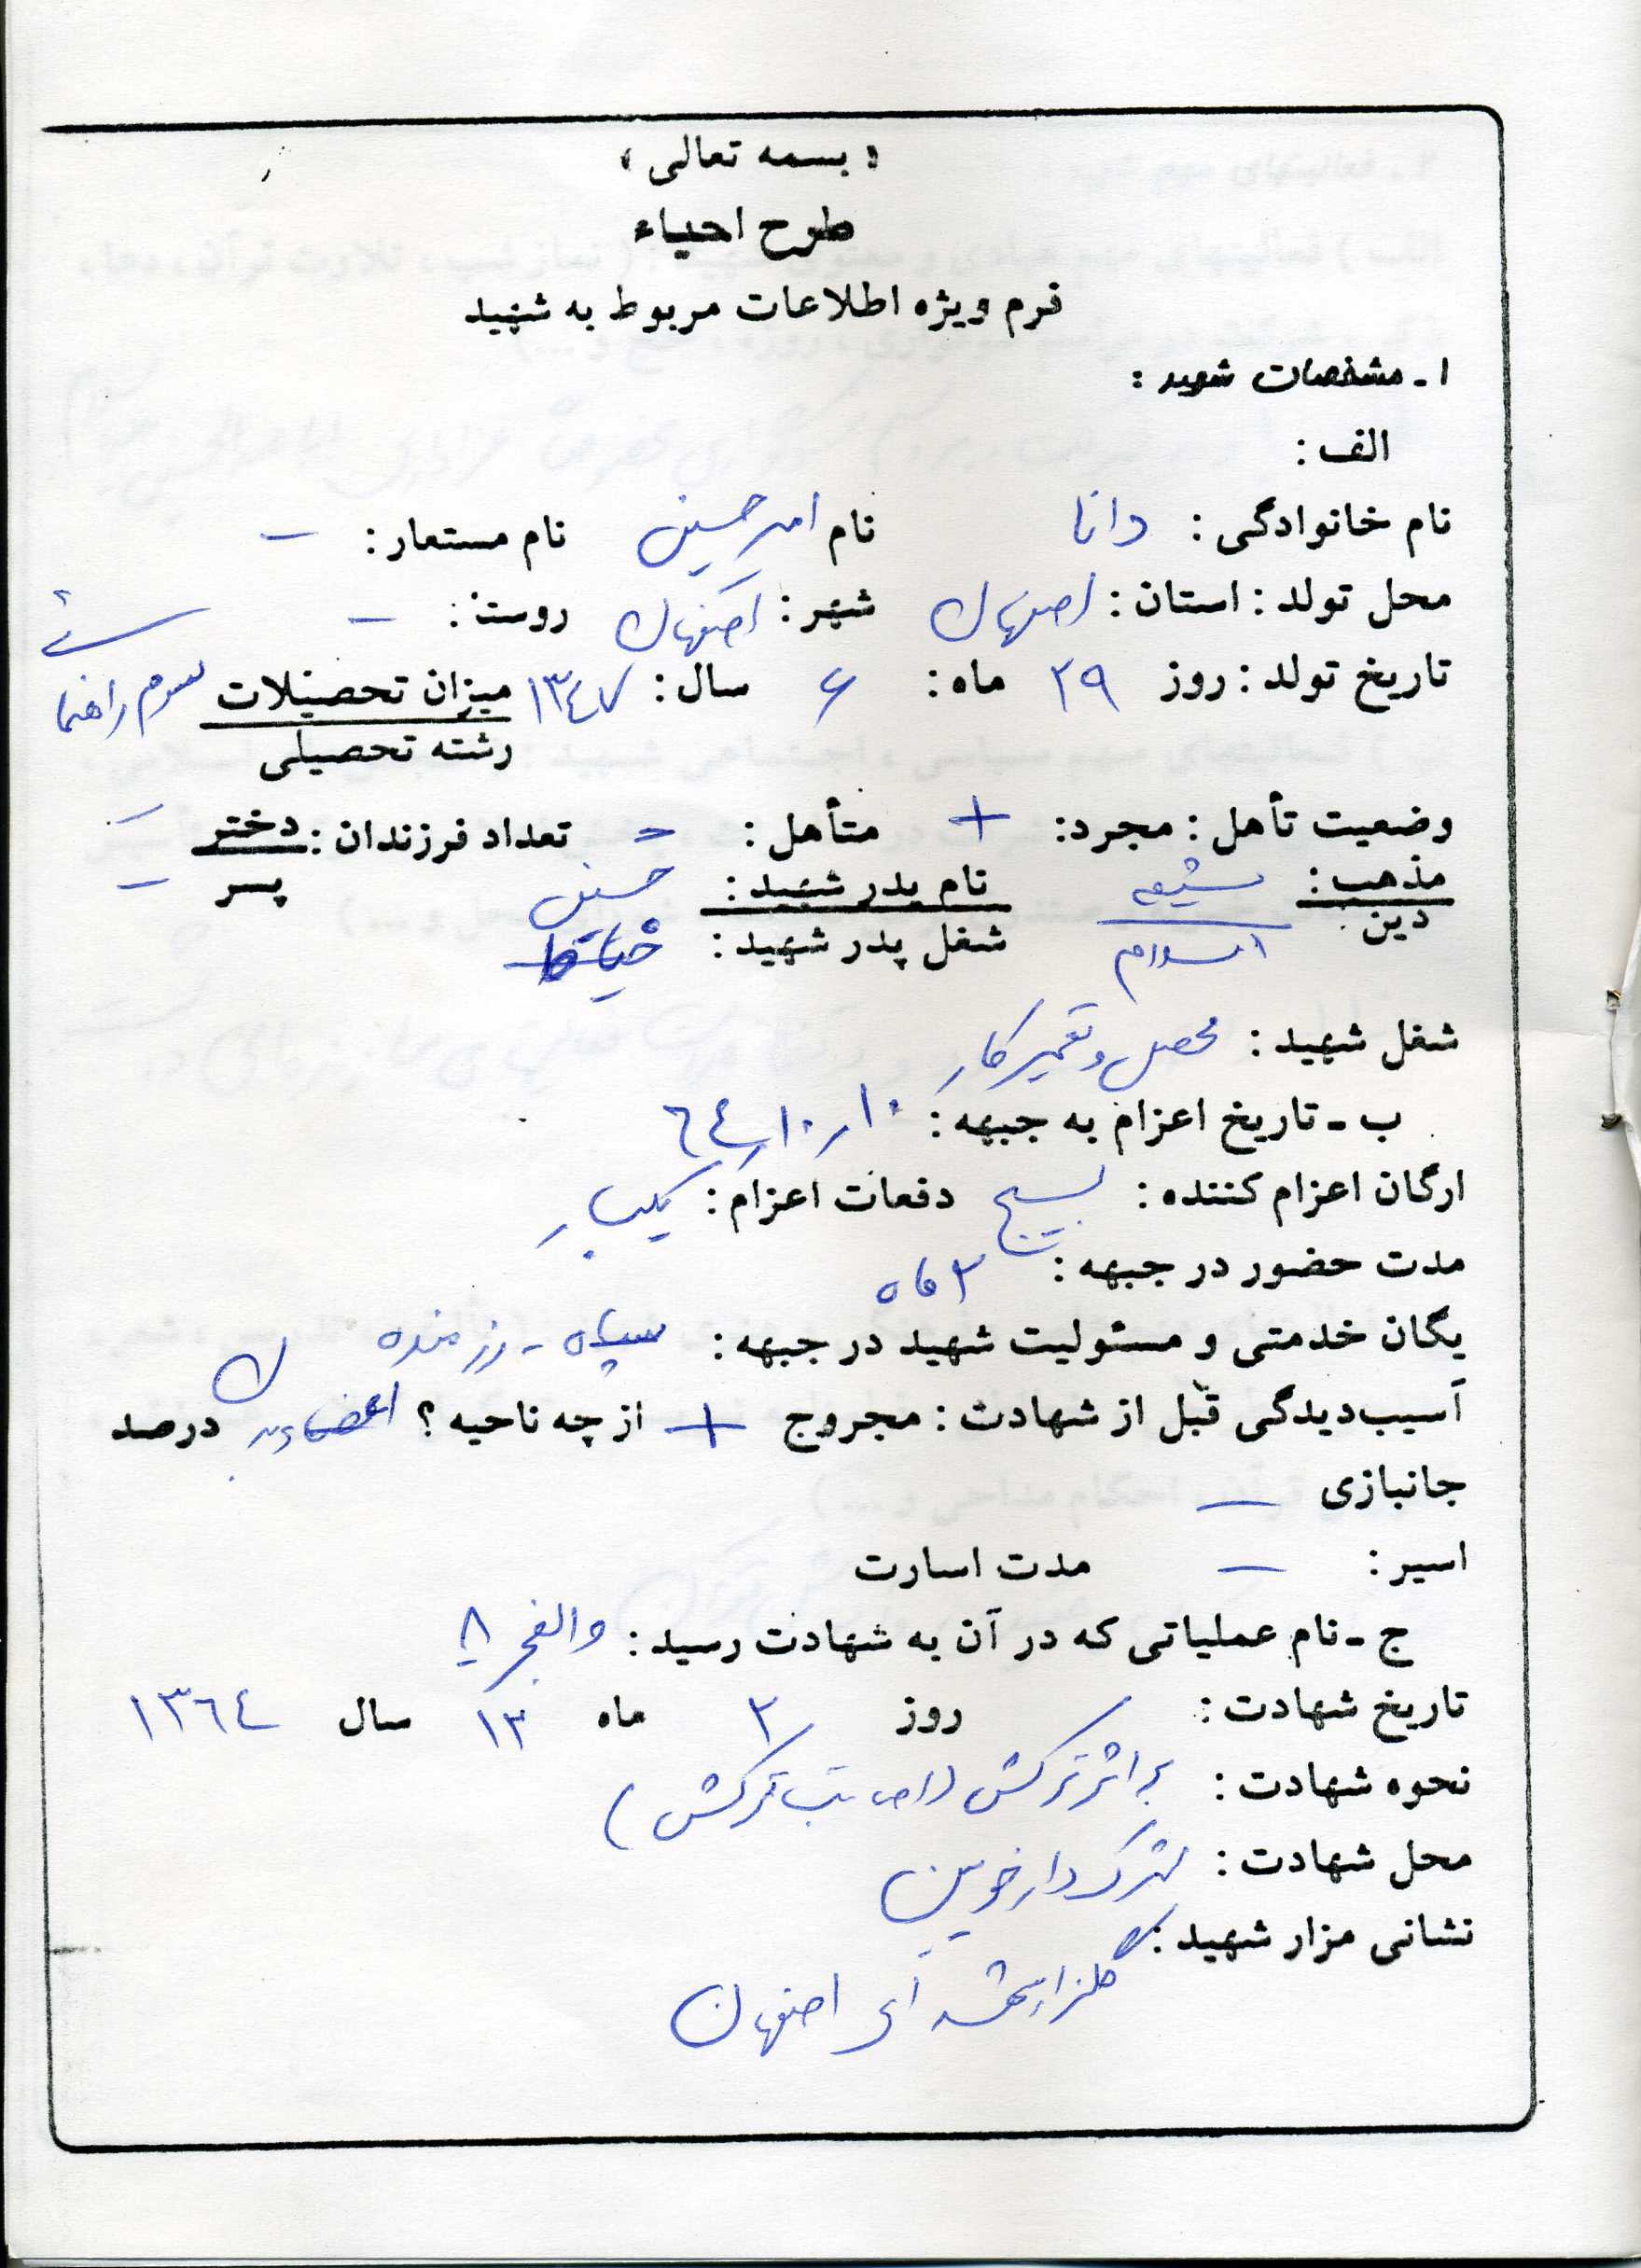 « بسمه تعالی »
طرح احیاء
فرم ویژه اطلاعات مربوط به شهید
۱ـ مشخصات شهید :
الف :
نام خانوادگی : دانا نام امیرحسین نام مستعار : –
محل تولد : استان : اصفهان شهر : اصفهان روستا : –
تاریخ تولد : روز ۲۹ ماه : ۶ سال : ۱۳٤۷ میزان تحصیلات سوم راهنمائی
رشته تحصیلی
وضعیت تأهل : مجرد : + متأهل : – تعداد فرزندان : دختر –
پسر –
مذهب : شیعه نام پدر شهید : حسین
دین اسلام شغل پدر شهید : خیاط
شغل شهید : محصل و تعمیرکار
ب ـ تاریخ اعزام به جبهه : ۱۰ر۱۰ر٦٤
ارگان اعزام کننده : بسیج دفعات اعزام : یکبار
مدت حضور در جبهه : ۲ ماه
یگان خدمتی و مسئولیت شهید در جبهه : سپاه - رزمنده
آسیب‌دیدگی قبل از شهادت : مجروح + از چه ناحیه ؟ اعضاء بدن درصد
جانبازی –
اسیر : – مدت اسارت
ج ـ نام عملیاتی که در آن به شهادت رسید : والفجر ۸
تاریخ شهادت : روز ۲ ماه ۱۲ سال ۱۳٦٤
نحوه شهادت : بر اثر ترکش (اصابت ترکش)
محل شهادت : شهرک دارخوین
نشانی مزار شهید :
گلزار شهدای اصفهان